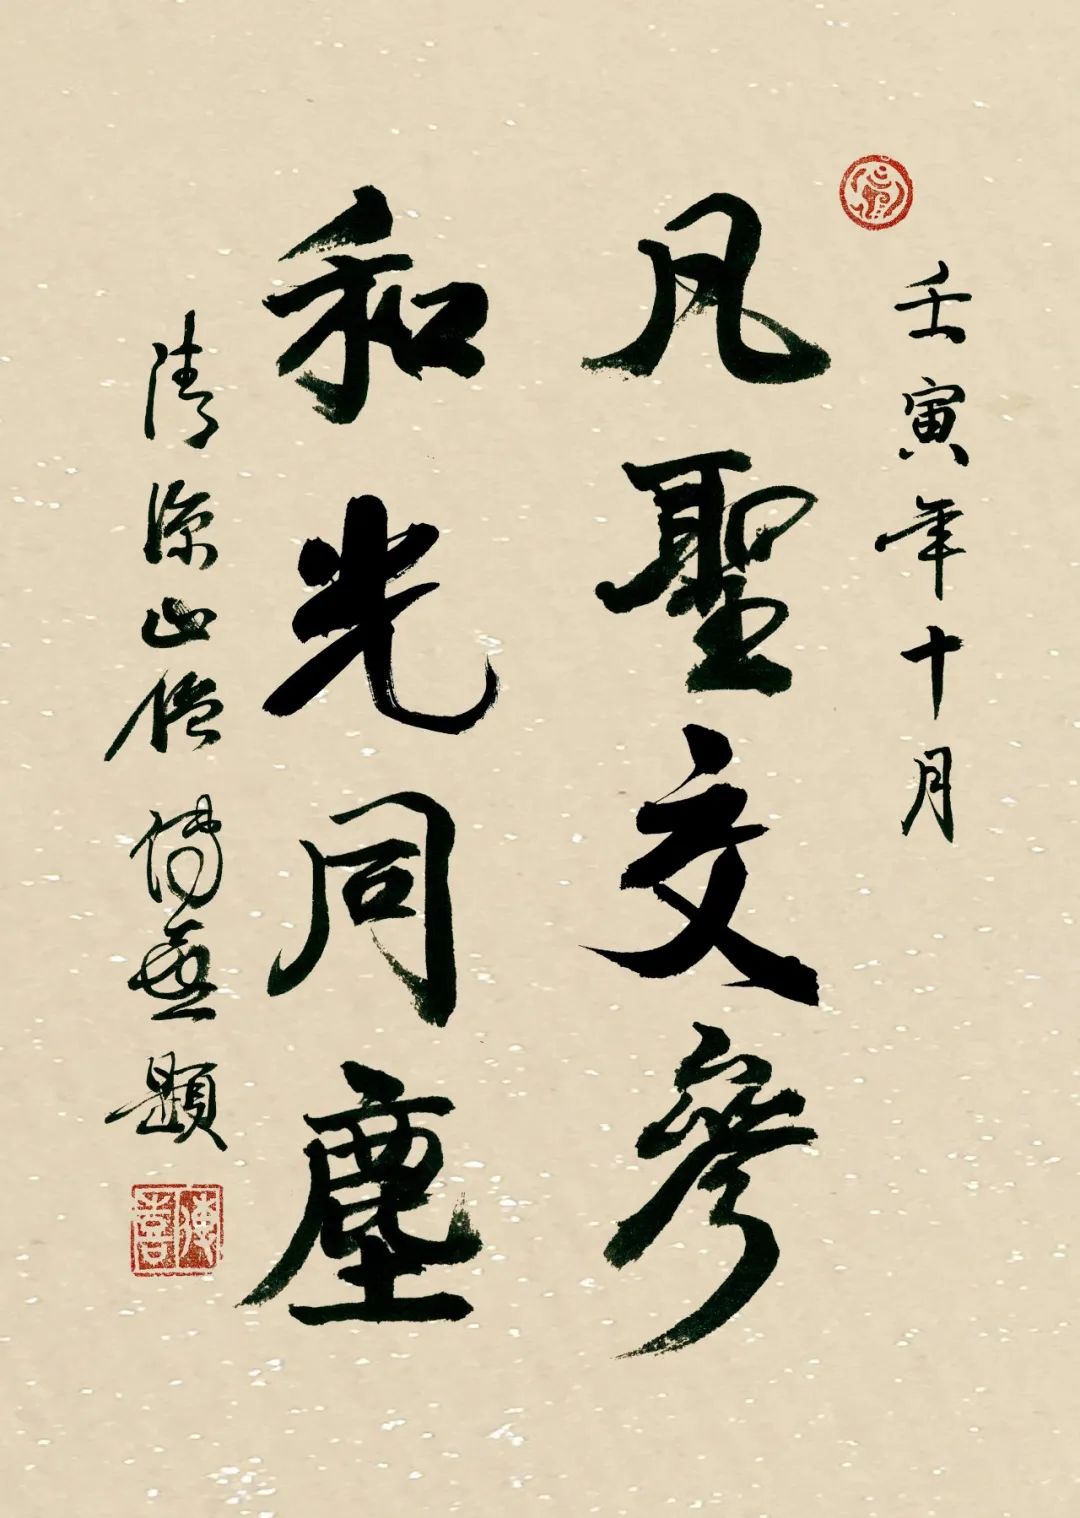 壬寅年十月
凡聖交參
和光同塵
清涼山僧傳喜題
傳喜